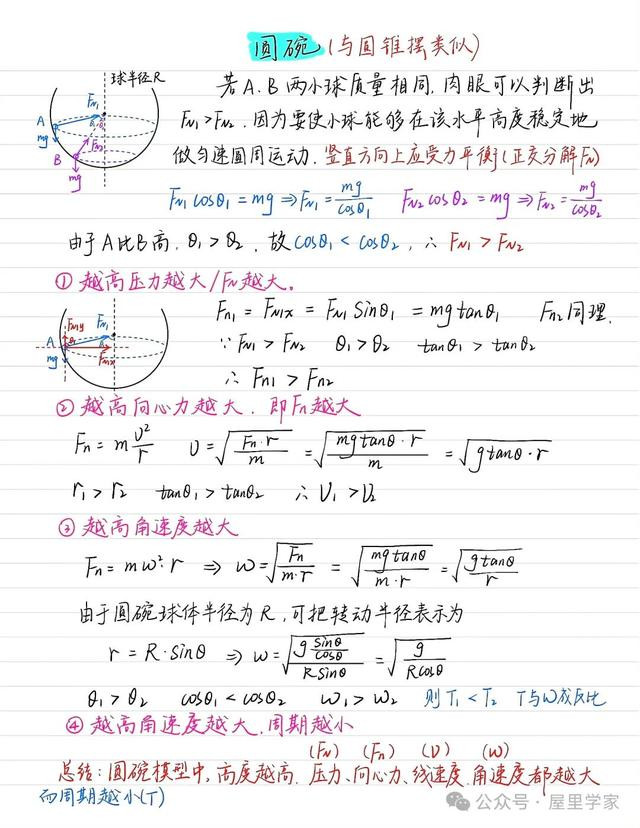 圆碗 (与圆锥摆类似)
球半径R
若A.B两小球质量相同,肉眼可以判断出
FN1>FN2. 因为要使小球能够在该水平高度稳定地
做匀速圆周运动. 竖直方向上应受力平衡(正交分解FN)
A FN1 θ1 mg
B FN2 mg
FN1cosθ1=mg⇒FN1=mg/cosθ1 FN2cosθ2=mg⇒FN2=mg/cosθ2
由于A比B高. θ1>θ2. 故cosθ1<cosθ2, ∴ FN1>FN2
① 越高压力越大/FN越大。
A FN1y FN1 θ1 FN1x mg
Fn1=FN1x=FN1 Sinθ1=mgtanθ1 Fn2同理.
∵ FN1>FN2 θ1>θ2 tanθ1>tanθ2
∴ Fn1>Fn2
② 越高向心力越大. 即Fn越大
Fn=m υ²/r υ=√(Fn·r/m)=√(mgtanθ·r/m)=√(gtanθ·r)
r1>r2 tanθ1>tanθ2 ∴ υ1>υ2
③ 越高角速度越大
Fn=mω²·r ⇒ ω=√(Fn/m·r)=√(mgtanθ/m·r)=√(gtanθ/r)
由于圆碗球体半径为R,可把转动半径表示为
r=R·sinθ ⇒ω=√(g sinθ/cosθ / RSinθ)=√(g/Rcosθ)
θ1>θ2 cosθ1<cosθ2 ω1>ω2 则T1<T2 T与ω成反比
④ 越高角速度越大.周期越小
(FN) (Fn) (υ) (ω)
总结:圆碗模型中,高度越高. 压力、向心力、线速度.角速度都越大
而周期越小(T)
公众号·屋里学家